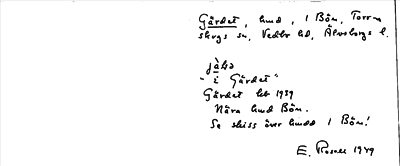 Gärdet, hmd, 1 Bön, Torrа
skogs sn, Vedbo hd, Älvsborgs l.
jàLa
"i Gärdet"
Gärdet heb 1929
Nära hmd Bön.
Se skiss över hmd 1 Bön!
E. Rosell 1929